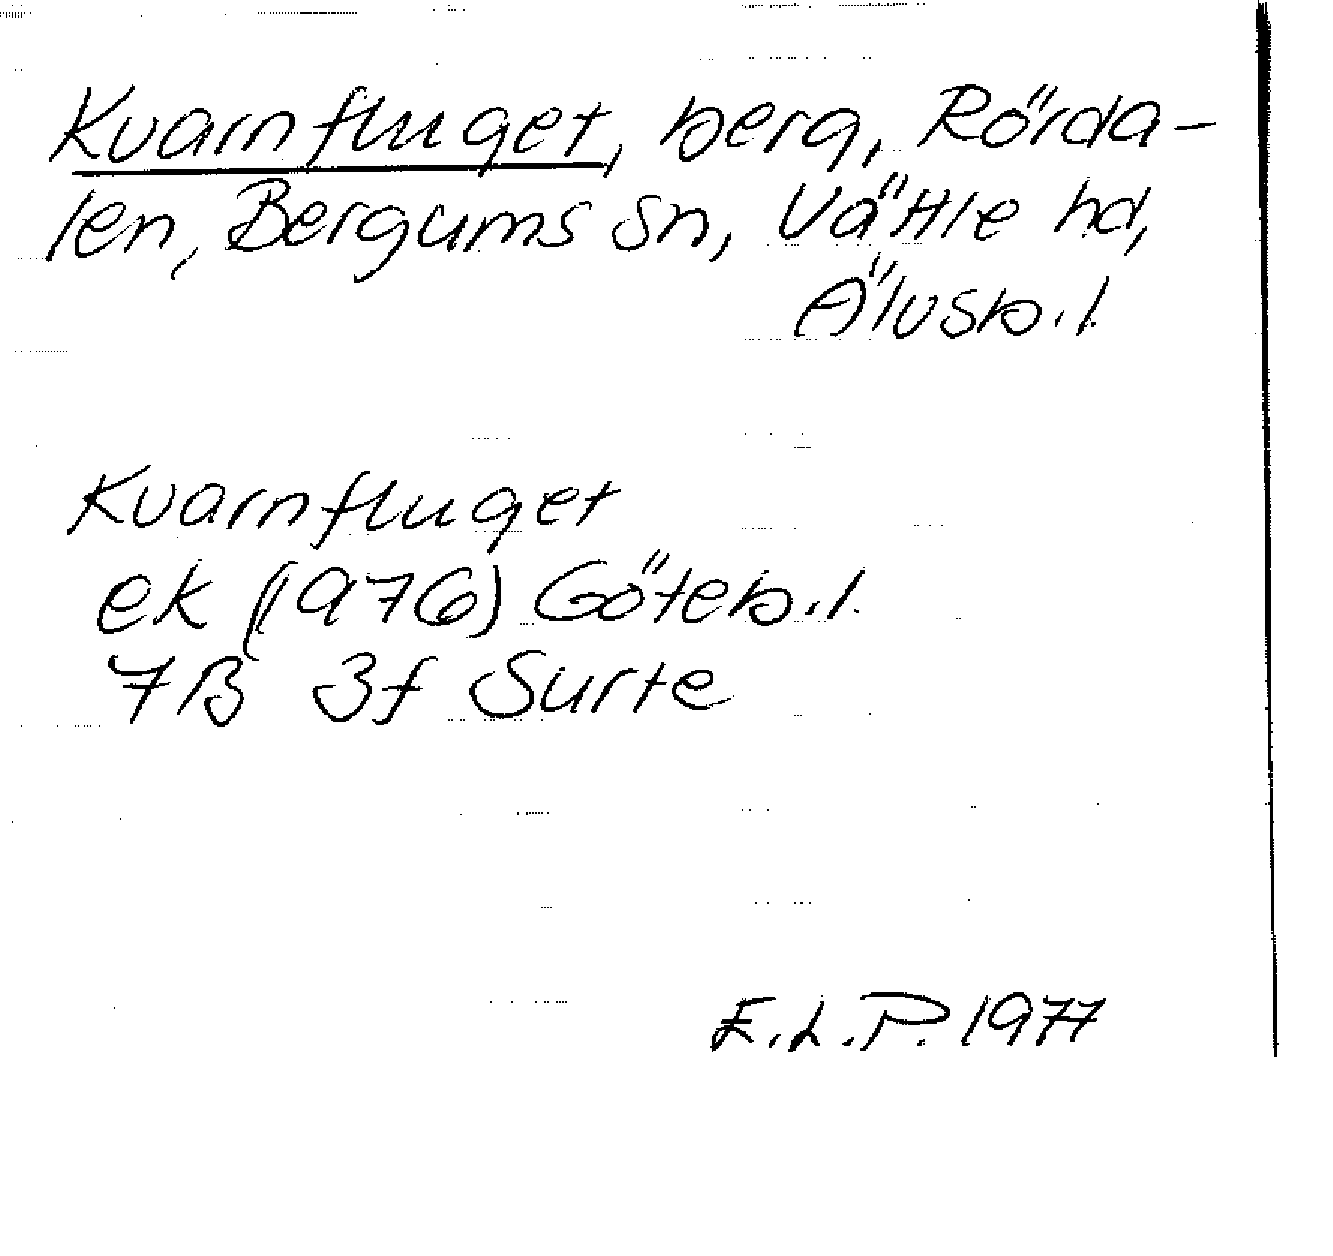 Kvarnfluget, berg, Rörda-
len, Bergums sn, Vättle hd,
Älvsb.l.
Kvarnfluget
ek (1976) Göteb.l.
7B 3f Surte
E.L.P. 1977